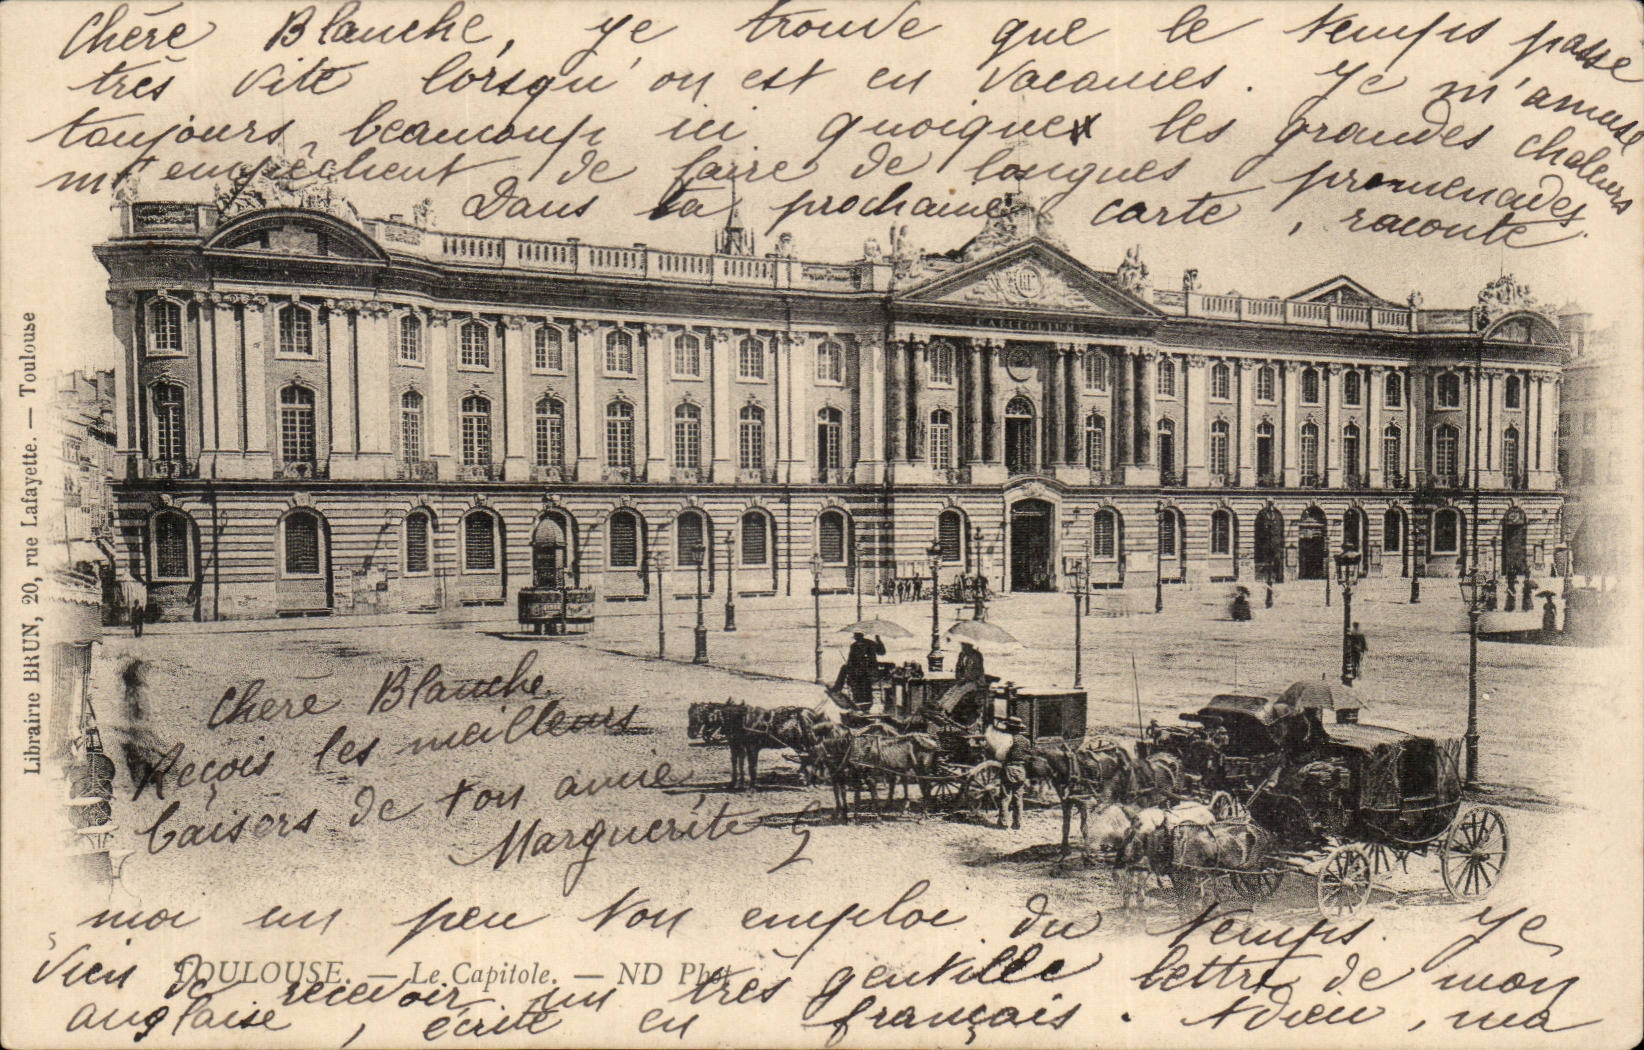 Chère Blanche, je trouve que le temps passe
très vite lorsqu'on est en vacances. Je m'amuse
toujours beaucoup ici quoique les grandes chaleurs
m'empêchent de faire de longues promenades.
Dans ta prochaine carte, raconte
CAPITOLIUM
Librairie BRUN, 20, rue Lafayette. — Toulouse
Chère Blanche
Reçois les meilleurs
baisers de ton amie,
Marguerite G
moi un peu ton emploi du temps. Je
5
TOULOUSE. — Le Capitole. — ND Phot
vien de recevoir un très gentille lettre de mon
anglaise, écrite en français. Adieu, ma